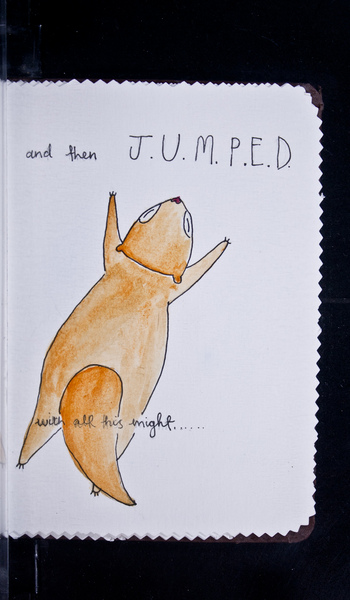 and then J.U.M.P.E.D.
with all this might......